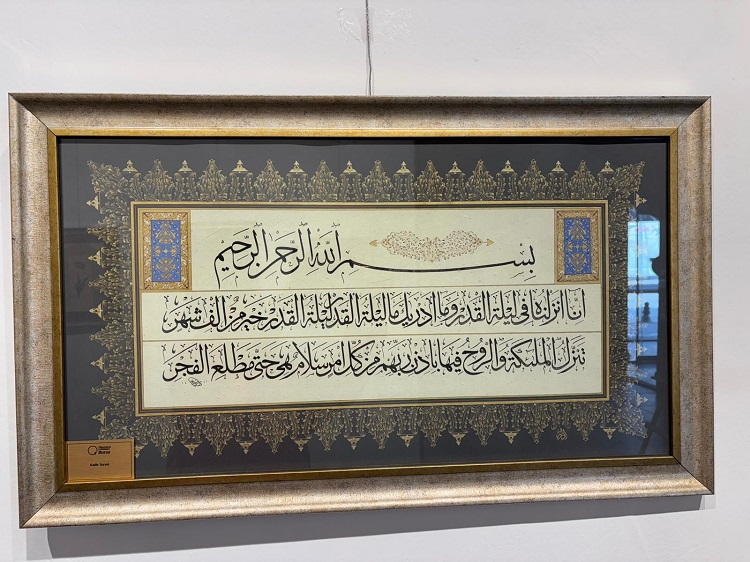 بسم الله الرحمن الرحيم
انا انزلناه في ليلة القدر وما ادريك ما ليلة القدر ليلة القدر خير من الف شهر
تنزل الملئكة والروح فيها باذن ربهم من كل امر سلام هي حتى مطلع الفجر
Bursa
Kadir Suresi